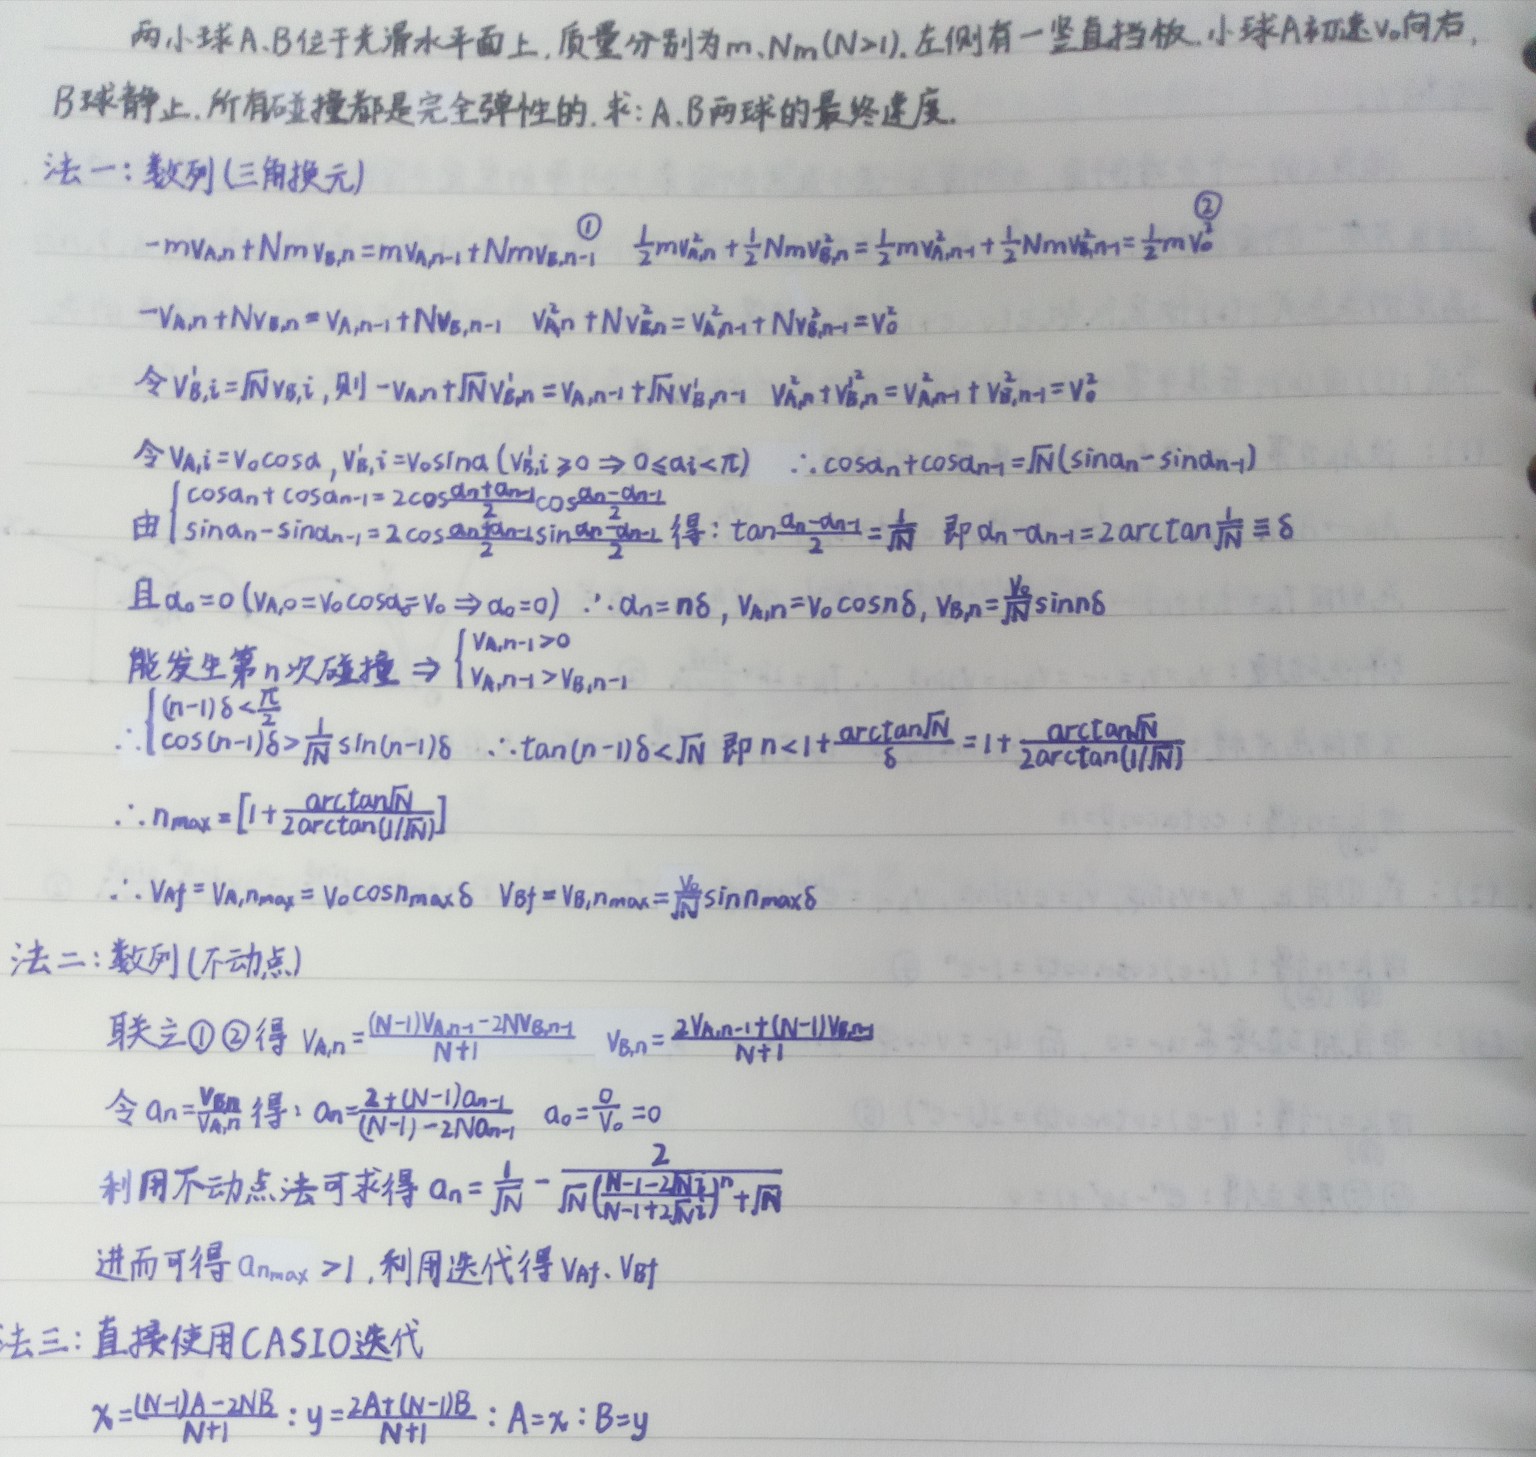 两小球A、B位于光滑水平面上,质量分别为m、Nm(N>1).左侧有一竖直挡板.小球A初速v₀向右,
B球静止.所有碰撞都是完全弹性的.求:A、B两球的最终速度.
法一:数列(三角换元)
-mv_{A,n}+Nmv_{B,n}=mv_{A,n-1}+Nmv_{B,n-1} ① ½mv²_{A,n}+½Nmv²_{B,n}=½mv²_{A,n-1}+½Nmv²_{B,n-1}=½mv₀² ②
-v_{A,n}+Nv_{B,n}=v_{A,n-1}+Nv_{B,n-1} v²_{A,n}+Nv²_{B,n}=v²_{A,n-1}+Nv²_{B,n-1}=v₀²
令v'_{B,i}=√N v_{B,i},则-v_{A,n}+√N v'_{B,n}=v_{A,n-1}+√N v'_{B,n-1} v²_{A,n}+v'²_{B,n}=v²_{A,n-1}+v'²_{B,n-1}=v₀²
令v_{A,i}=v₀cosα,v'_{B,i}=v₀sinα(v'_{B,i}≥0⇒0≤αi<π) ∴cosαn+cosαn-1=√N(sinαn-sinαn-1)
由{cosαn+cosαn-1=2cos(αn+αn-1)/2 cos(αn-αn-1)/2
sinαn-sinαn-1=2cos(αn+αn-1)/2 sin(αn-αn-1)/2 得:tan(αn-αn-1)/2=1/√N 即αn-αn-1=2arctan1/√N≡δ
且α₀=0(v_{A,0}=v₀cosα₀=v₀⇒α₀=0) ∴αn=nδ,v_{A,n}=v₀cosnδ,v_{B,n}=v₀/√N sinnδ
能发生第n次碰撞⇒{v_{A,n-1}>0
v_{A,n-1}>v_{B,n-1}
∴{(n-1)δ<π/2
cos(n-1)δ>1/√N sin(n-1)δ ∴tan(n-1)δ<√N 即n<1+arctan√N/δ=1+arctan√N/2arctan(1/√N)
∴n_{max}=[1+arctan√N/2arctan(1/√N)]
∴v_{Af}=v_{A,nmax}=v₀cosn_{max}δ v_{Bf}=v_{B,nmax}=v₀/√N sinn_{max}δ
法二:数列(不动点)
联立①②得 v_{A,n}=((N-1)v_{A,n-1}-2Nv_{B,n-1})/(N+1) v_{B,n}=(2v_{A,n-1}+(N-1)v_{B,n-1})/(N+1)
令an=v_{B,n}/v_{A,n}得:an=(2+(N-1)an-1)/((N-1)-2Nan-1) a₀=0/v₀=0
利用不动点法可求得an=1/√N-2/(√N((N-1-2√N i)/(N-1+2√N i))ⁿ+√N)
进而可得a_{nmax}>1,利用迭代得v_{Af}、v_{Bf}
法三:直接使用CASIO迭代
x=((N-1)A-2NB)/(N+1):y=(2A+(N-1)B)/(N+1):A=x:B=y